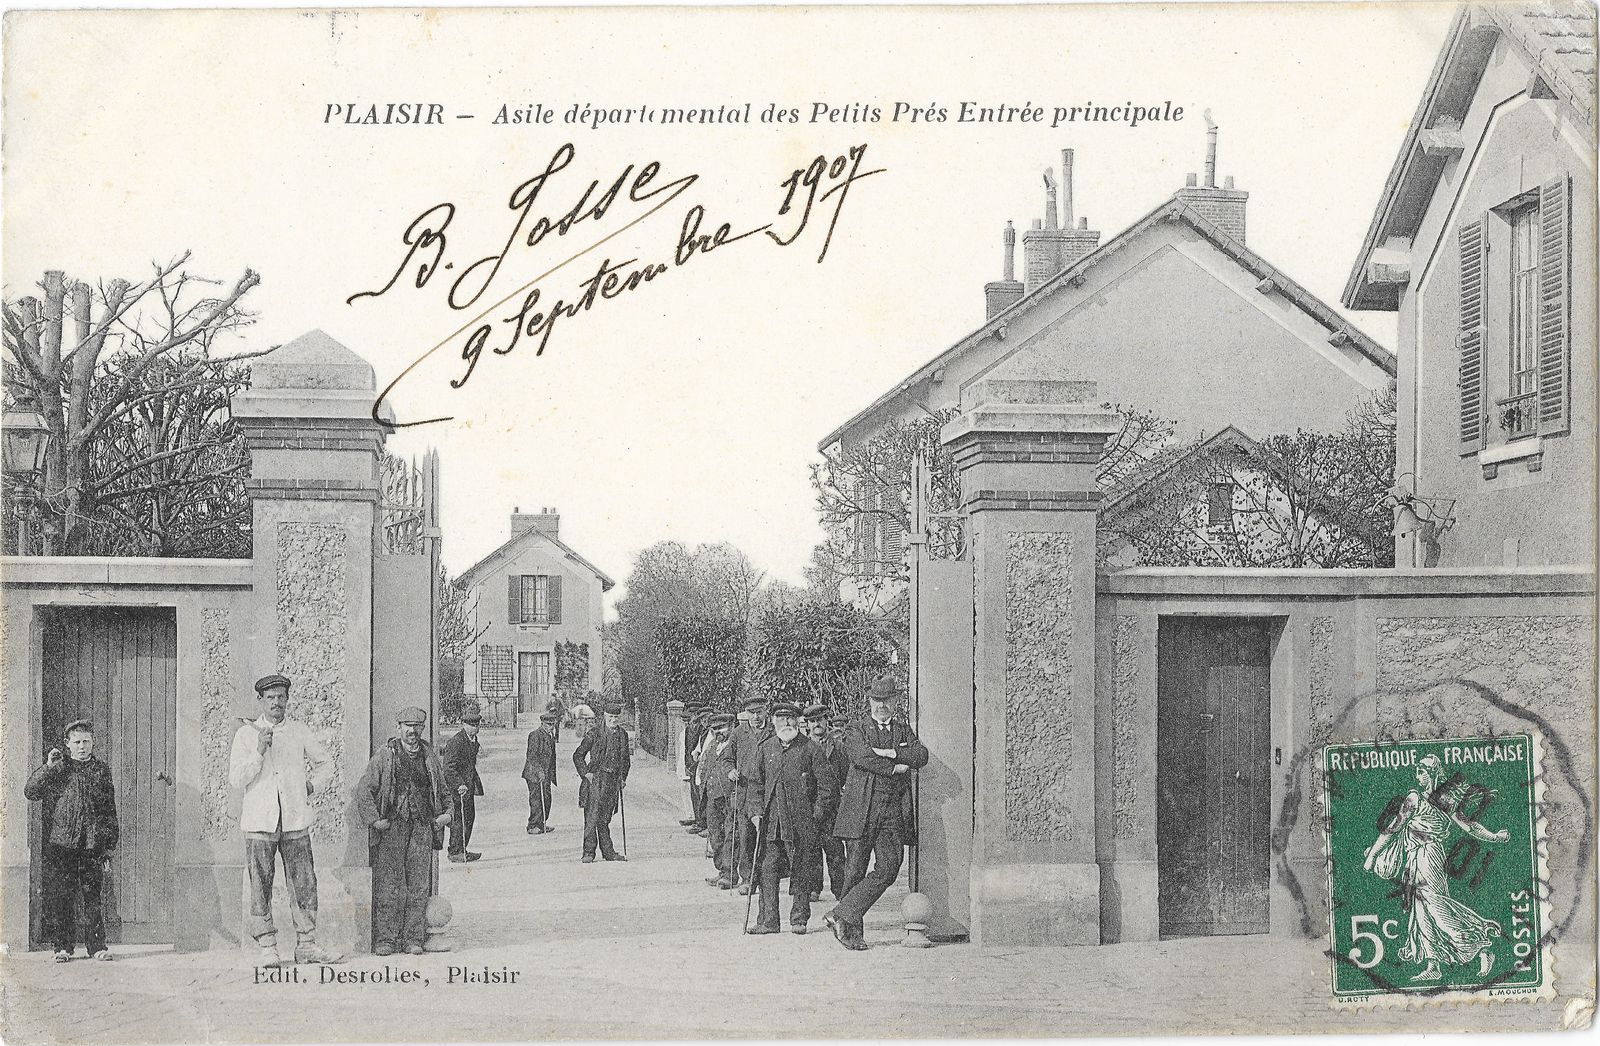 PLAISIR — Asile départemental des Petits Prés Entrée principale
B. Josse
9 Septembre 1907
REPUBLIQUE FRANÇAISE
10
07
5c
POSTES
O. ROTY
E. MOUCHON
Edit. Desrolles, Plaisir